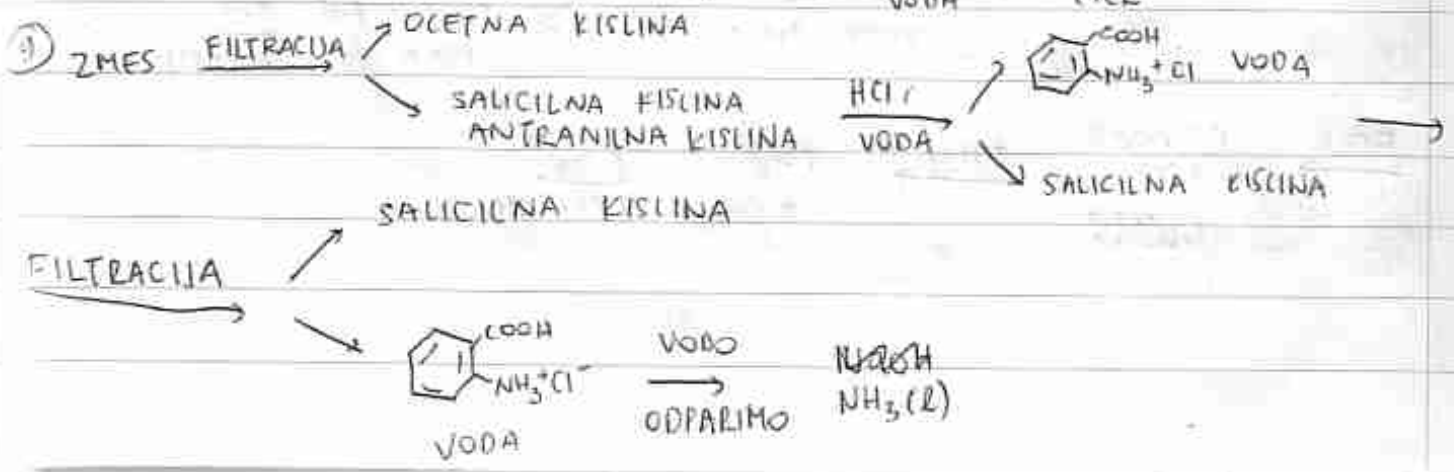 VODA
9) ZMES FILTRACIJA OCETNA KISLINA
SALICILNA KISLINA
ANTRANILNA KISLINA
HCl,
VODA
COOH
NH₃⁺Cl VODA
SALICILNA KISLINA
FILTRACIJA SALICILNA KISLINA
COOH
NH₃⁺Cl⁻
VODA
VODO
ODPARIMO
NaOH
NH₃(l)